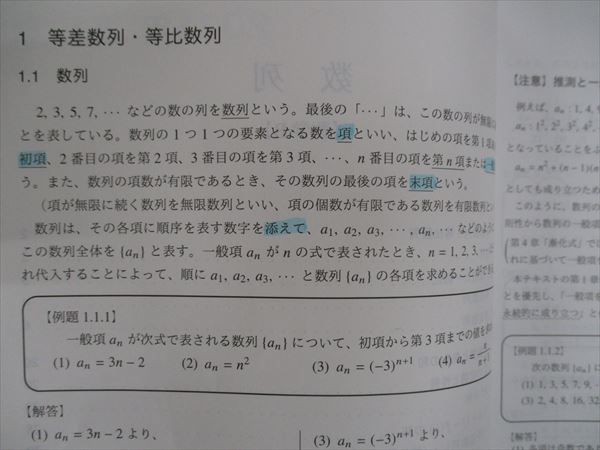 1 等差数列・等比数列
1.1 数列
2, 3, 5, 7, ⋯ などの数の列を数列という。最後の「⋯」は、この数の列が無限に
とを表している。数列の1つ1つの要素となる数を項といい、はじめの項を第1項
初項、2番目の項を第2項、3番目の項を第3項、⋯、n 番目の項を第 n 項または一
う。また、数列の項数が有限であるとき、その数列の最後の項を末項という。
（項が無限に続く数列を無限数列といい、項の個数が有限である数列を有限数列と
数列は、その各項に順序を表す数字を添えて、a₁, a₂, a₃, ⋯, aₙ, ⋯ などのよう
この数列全体を {aₙ} と表す。一般項 aₙ が n の式で表されたとき、n = 1, 2, 3, ⋯
れ代入することによって、順に a₁, a₂, a₃, ⋯ と数列 {aₙ} の各項を求めることができ
【例題 1.1.1】
一般項 aₙ が次式で表される数列 {aₙ} について、初項から第3項までの値を
(1) aₙ = 3n − 2 (2) aₙ = n² (3) aₙ = (−3)ⁿ⁺¹ (4) aₙ =
【解答】
(1) aₙ = 3n − 2 より、
(3) aₙ = (−3)ⁿ⁺¹ より、
【注意】推測と一
例えば、aₙ : 1, 4, 9
aₙ : 1², 2², 3², 4²,
となっていることをふ
aₙ = n² + (n − 1)(n
としても成り立つため
このように、数列の
則性から数列の一般項
(第4章「漸化式」で
れに基づいて一般項
本テキストの第1章
とを優先し、「一般項
永続的に成り立つ」と
【例題 1.1.2】
次の数列 {aₙ} に
(1) 1, 3, 5, 7, 9,
(3) 2, 4, 8, 16, 32
【解答】
(1) 各項は奇数であ